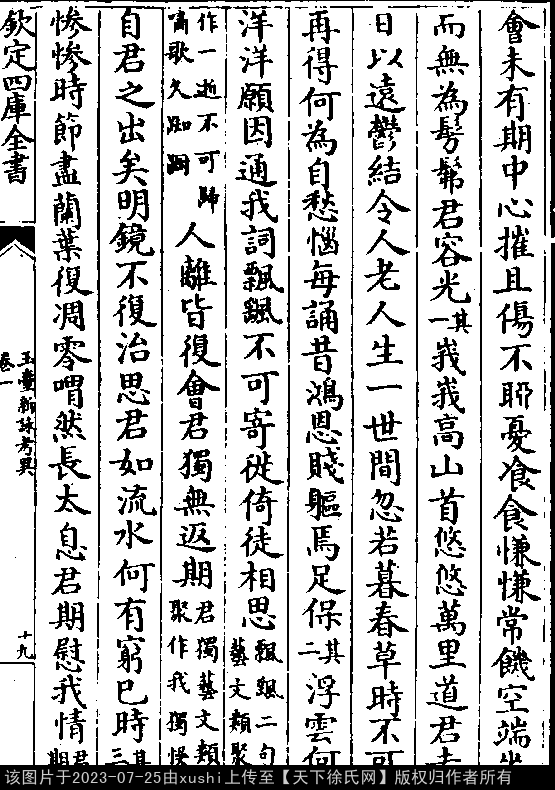 會未有期中心摧且傷不聊憂飡食慊慊常饑空端坐
而無為髣髴君容光其一峩峩高山首悠悠萬里道君去
日以遠鬱結令人老人生一世間忽若暮春草時不可
再得何為自愁惱每誦昔鴻恩賤軀焉足保其二浮雲何
洋洋願因通我詞飄飄不可寄徙倚徒相思飄飄二句藝文類聚
作一逝不可歸嘯歌久踟蹰人離皆復會君獨無返期君獨藝文類聚作我獨
自君之出矣明鏡不復治思君如流水何有窮已時其三
慘慘時節盡蘭葉復凋零喟然長太息君期慰我情君期
欽定四庫全書
玉臺新詠考異
卷一
十九
该图片于2023-07-25由xushi上传至【天下徐氏网】版权归作者所有